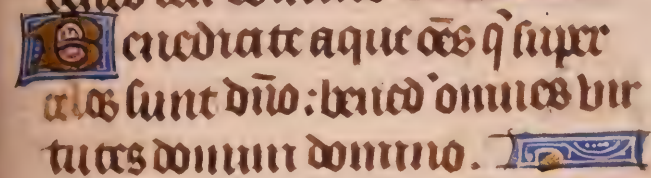 Benedicite aque oẽs q̃ super
celos sunt dño : bened' omnes vir
tutes domini domino .